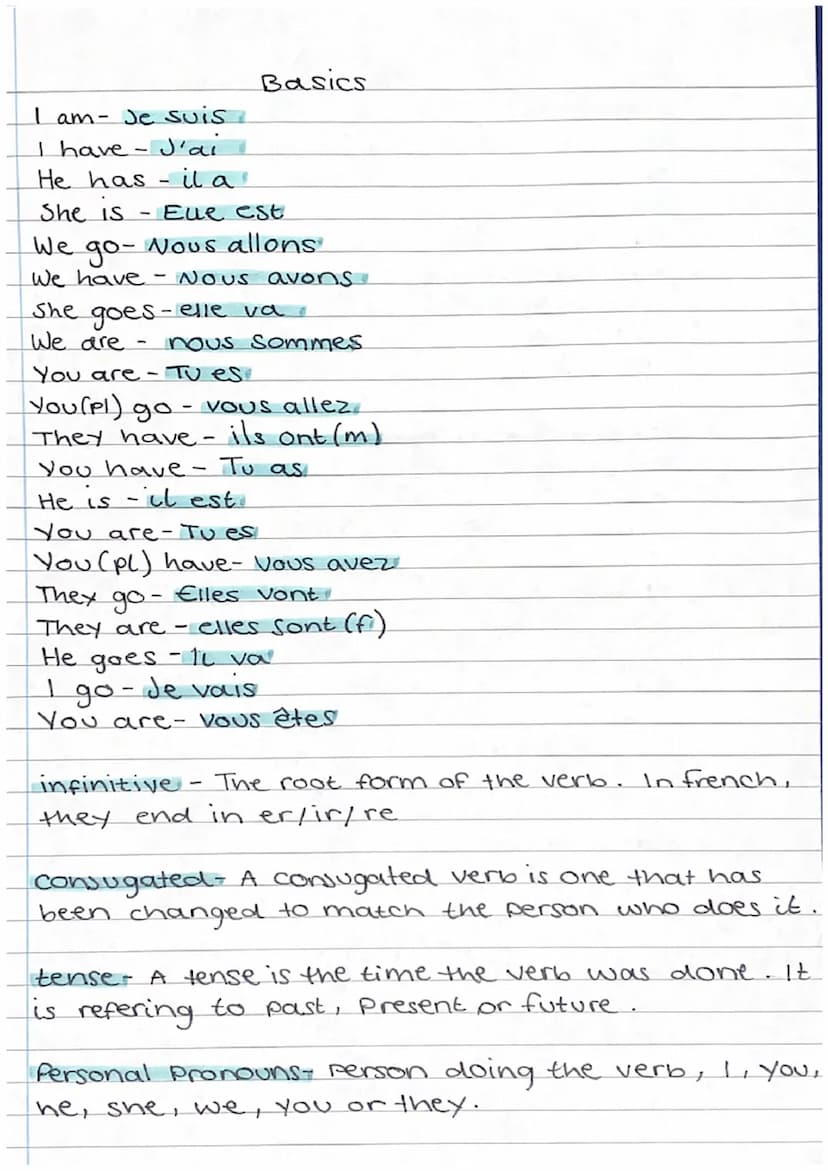 Basics
I am - Je suis
I have - J'ai
He has - il a
She is - Elle est
We go - Nous allons
We have - Nous avons
She goes - elle va
We are - nous sommes
You are - Tu es
You(pl) go - vous allez
They have - ils ont (m)
You have - Tu as
He is - il est
You are - Tu es
You (pl) have - Vous avez
They go - Elles vont
They are - elles sont (f)
He goes - il va
I go - Je vais
You are - vous êtes
infinitive - The root form of the verb. In french,
they end in er/ir/re
Conjugated - A conjugated verb is one that has
been changed to match the person who does it.
tense - A tense is the time the verb was done. It
is refering to past, present or future.
Personal Pronouns - Person doing the verb, I, you,
he, she, we, you or they.